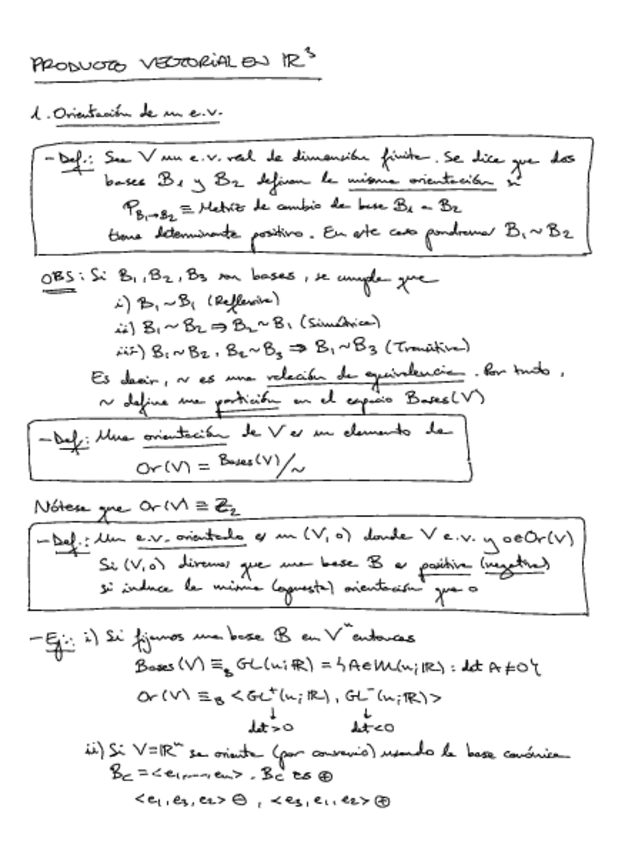 PRODUCTO VECTORIAL EN IR³
1. Orientación de un e.v.
- Def.: Sea V un e.v. real de dimensión finita. Se dice que dos
bases B₁ y B₂ definen la misma orientación si
P_{B₁→B₂} ≡ Matriz de cambio de base B₁ a B₂
tiene determinante positivo. En este caso pondremos B₁ ~ B₂
OBS: Si B₁, B₂, B₃ son bases, se cumple que
i) B₁ ~ B₁ (Reflexiva)
ii) B₁ ~ B₂ ⇒ B₂ ~ B₁ (Simétrica)
iii) B₁ ~ B₂, B₂ ~ B₃ ⇒ B₁ ~ B₃ (Transitiva)
Es decir, ~ es una relación de equivalencia. Por tanto,
~ define una partición en el espacio Bases(V)
- Def.: Una orientación de V es un elemento de
Or(V) = Bases(V)/~
Nótese que Or(V) ≡ Z₂
- Def.: Un e.v. orientado es un (V, o) donde V e.v. y o∈Or(V)
Si (V, o) diremos que una base B es positiva (negativa)
si induce la misma (opuesta) orientación que o
- Ej.: i) Si fijamos una base B en Vⁿ entonces
Bases(V) ≡_B GL(n; IR) = {A∈M(n; IR) : det A ≠ 0}
Or(V) ≡_B <GL⁺(n; IR), GL⁻(n; IR)>
↓ ↓
det>0 det<0
ii) Si V=IRⁿ se orienta (por convenio) usando la base canónica
B_C = <e₁, ..., eₙ>. B_C es ⊕
<e₁, e₃, e₂> ⊖, <e₃, e₁, e₂> ⊕